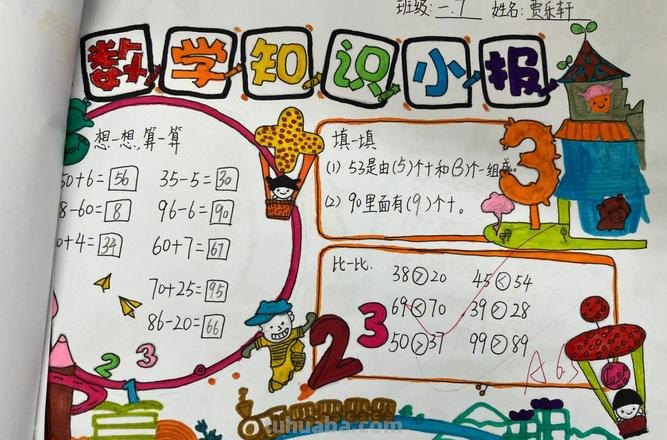 班级:一.7 姓名:贾乐轩
数学知识小报
想一想,算一算
50+6=56 35-5=30
8-60=8 96-6=90
0+4=34 60+7=67
70+25=95
86-20=66
填一填
(1) 53是由(5)个十和(3)个一组成。
(2) 90里面有(9)个十。
比一比.
38>20 45<54
69<70 39>28
50>37 99>89
3
2 3
2 3
1
uhuaba.com